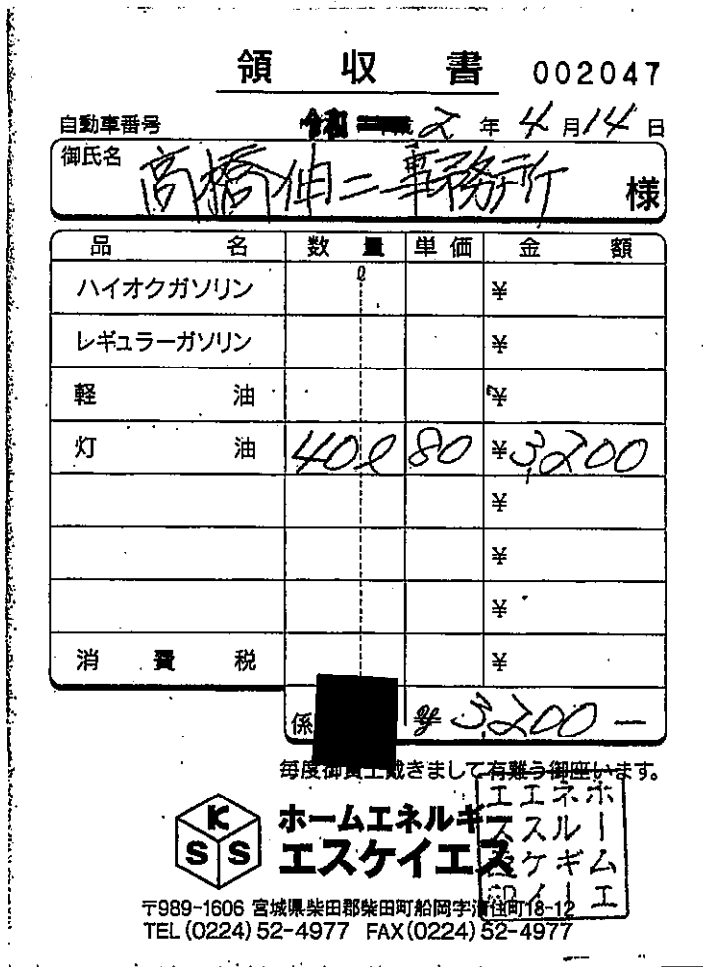 領収書 002047
自動車番号 令和 2年4月14日
御氏名 高橋伸二事務所 様
品名 数量 単価 金額
ハイオクガソリン ℓ ¥
レギュラーガソリン ¥
軽油 ¥
灯油 40ℓ 80 ¥3,200
¥
¥
¥
消費税 ¥
係 ¥3,200ー
毎度御買上戴きまして有難う御座います。
KSS ホームエネルギー
エスケイエス
ホームエ
ネルギー
エスケイ
エス
〒989-1606 宮城県柴田郡柴田町船岡字清住町18-12
TEL(0224)52-4977 FAX(0224)52-4977